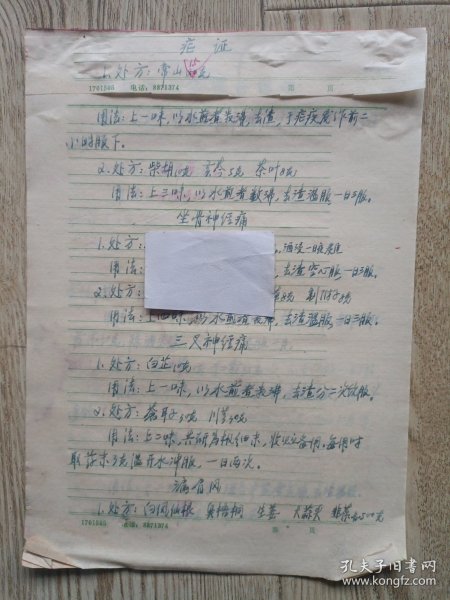 疟证
1.处方：常山
1701565 电话：8871374 第 页
用法：上一味，以水煎煮数沸，去渣，于疟疾发作前二
小时服下。
2.处方：柴胡 黄芩 茶叶
用法：上三味，以水煎煮数沸，去渣温服，一日三服。
坐骨神经痛
1.处方： 酒浸一宿
用法： 去渣空心服，一日三服。
2.处方： 制
用法：上 味，以水煎煮数沸，去渣温服，一日三服。
三叉神经痛
1.处方：白芷
用法：上一味，以水煎煮数沸，去渣分二次饮服。
2.处方：
用法：上二味，共研为极细末，收贮备用。每用时
取药末3克温开水冲服，一日两次。
漏肩风
1.处方：白凤仙根 臭梧桐 生姜 大蒜头 韭菜
1701565 电话：8871374 第 页
孔夫子旧书网
www.kongfz.com